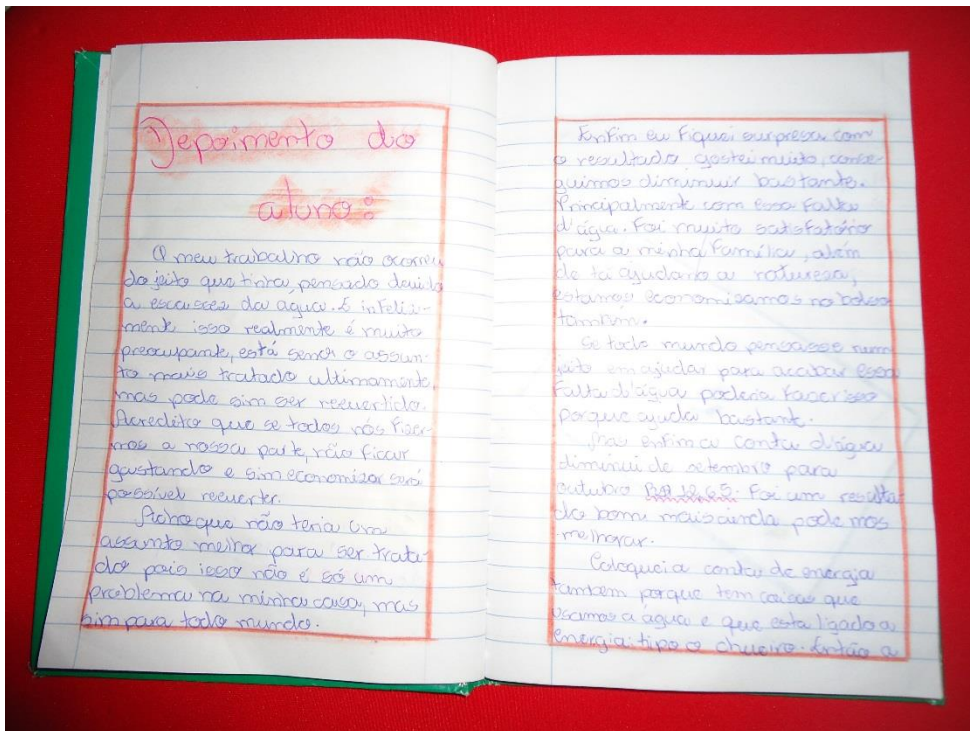 Depoimento do
aluno:
O meu trabalho não ocorreu
do jeito que tinha, pensado devido
a escasces da água. E infeliz-
mente isso realmente é muito
preocupante, está send o assun-
to mais tratado ultimamente,
mas pode sim ser revertido.
Acredito que se todos nós fizer-
mos a nossa parte, não ficar
gastando e sim economizar será
possível reverter.
Acho que não teria um
assunto melhor para ser trata-
do pois isso não é só um
problema na minha casa, mas
sim para todo mundo.
Enfim eu fiquei surpresa com
o resultado gostei muito, conse-
guimos diminuir bastante.
Principalmente com essa falta
d'água. Foi muito satisfatório
para a minha família, além
de ta ajudano a natureza,
estamos economisamos no bolso
também.
Se todo mundo pensasse num
jeito em ajudar para acabar essa
falta d'água poderia fazer isso
porque ajuda bastante.
Mas enfim a conta d'água
diminui de setembro para
outubro R$ 12,65. Foi um resulta-
do bom mais ainda pode mos
melhorar.
Coloquei a conta de energia
também porque tem coisas que
usamos a água e que esta ligado a
energia: tipo o chuveiro. Então a